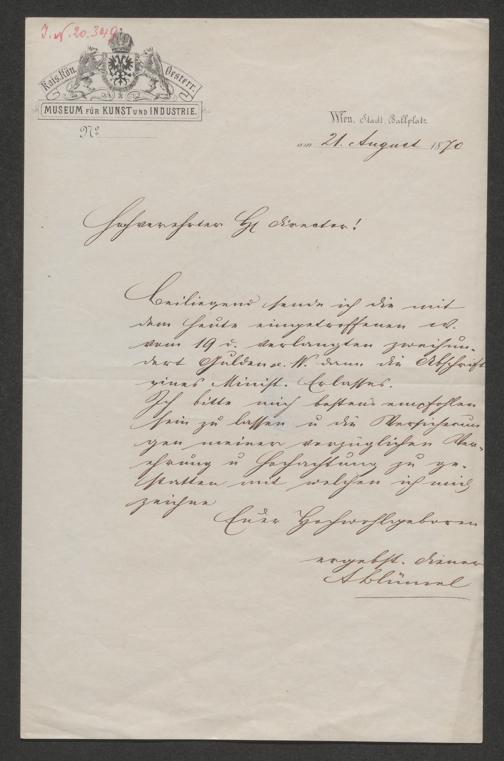 I.N. 20.349
Kais. Kön. Oesterr.
MUSEUM FÜR KUNST UND INDUSTRIE.
No.
Wien, Stadt, Ballplatz
am 21. August 1870
Hochverehrter H. Director!
Beiliegend sende ich die mit
dem heute eingetroffenen
vom 19 d. verlangten zweihun-
dert Gulden ö. W. dann die Abschrift
eines Minist. Erlasses.
Ich bitte mich bestens empfohlen
sein zu lassen u die Versicherun
gen meiner vorzüglichen Ver-
ehrung u Hochachtung zu ge-
statten mit welchen ich mich
zeichne
Euer Hochwohlgeboren
ergebst. Diener